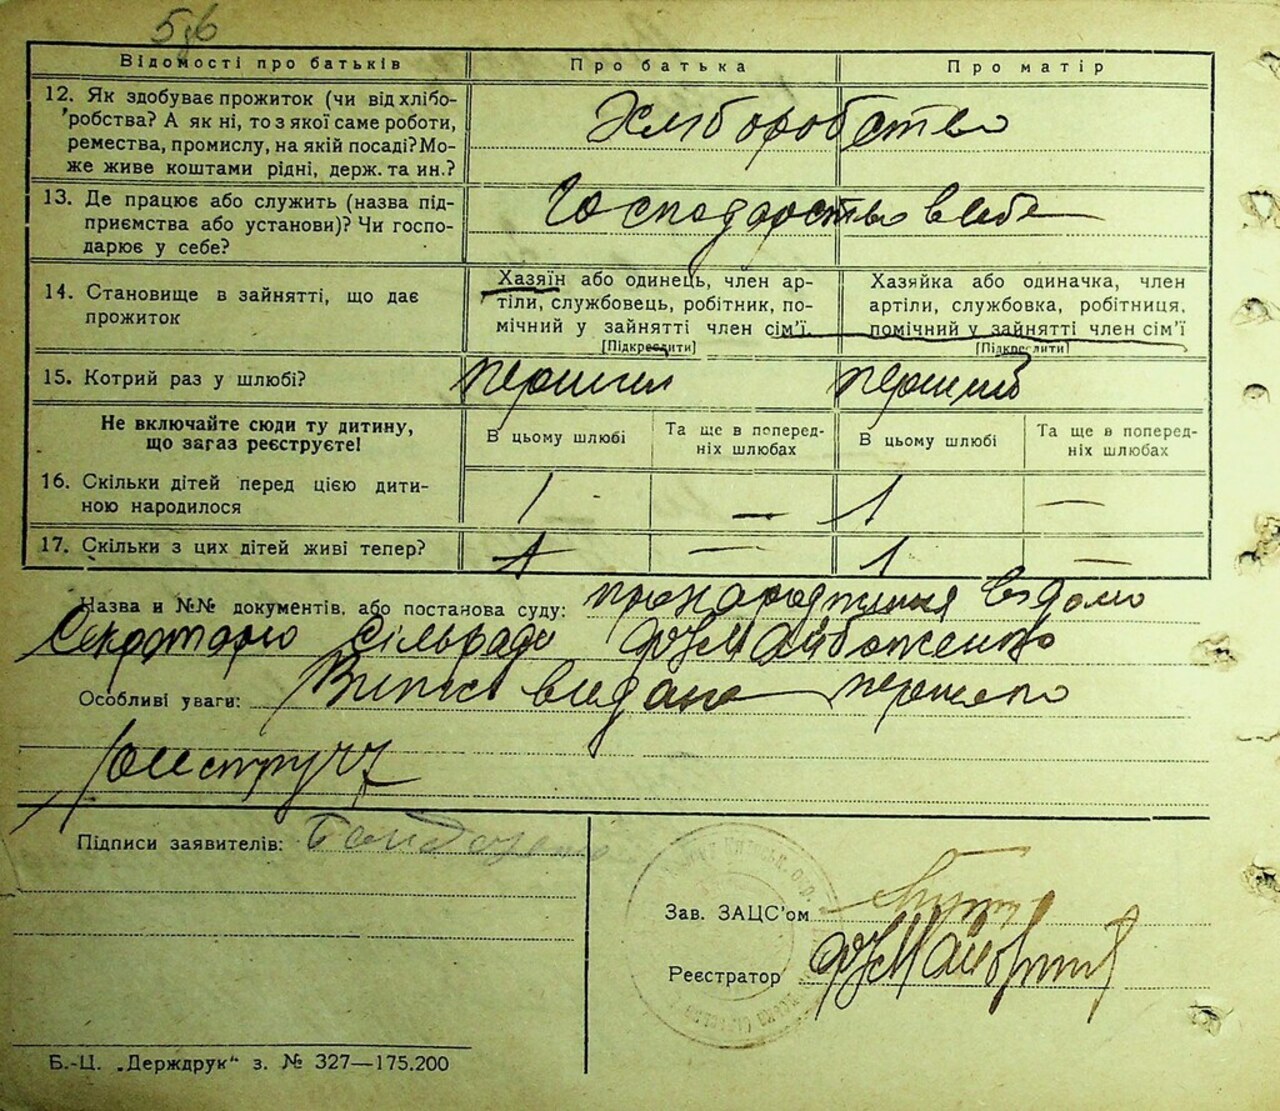 5
Відомості про батьків
Про батька
Про матір
12. Як здобуває прожиток (чи від хлібо-
робства? А як ні, то з якої саме роботи,
ремества, промислу, на якій посаді? Мо-
же живе коштами рідні, держ. та ин.?
Хліборобство
13. Де працює або служить (назва під-
приємства або установи)? Чи госпо-
дарює у себе?
Господарство в себе
14. Становище в зайнятті, що дає
прожиток
Хазяїн або одинець, член ар-
тіли, службовець, робітник, по-
мічний у зайнятті член сім'ї.
[Підкреслити]
Хазяйка або одиначка, член
артіли, службовка, робітниця,
помічний у зайнятті член сім'ї
[Підкреслити]
15. Котрий раз у шлюбі?
перший
перший
Не включайте сюди ту дитину,
що загаз реєструєте!
В цьому шлюбі
Та ще в поперед-
ніх шлюбах
В цьому шлюбі
Та ще в поперед-
ніх шлюбах
16. Скільки дітей перед цією дити-
ною народилося
1 — 1 —
17. Скільки з цих дітей живі тепер?
1 — 1 —
Назва и №№ документів, або постанова суду: про народження відомо
Секретарю Сільради
Особливі уваги: Випис видано першого
Підписи заявителів:
Зав. ЗАЦС'ом
Реєстратор
Б.-Ц. „Держдрук" з. № 327—175.200